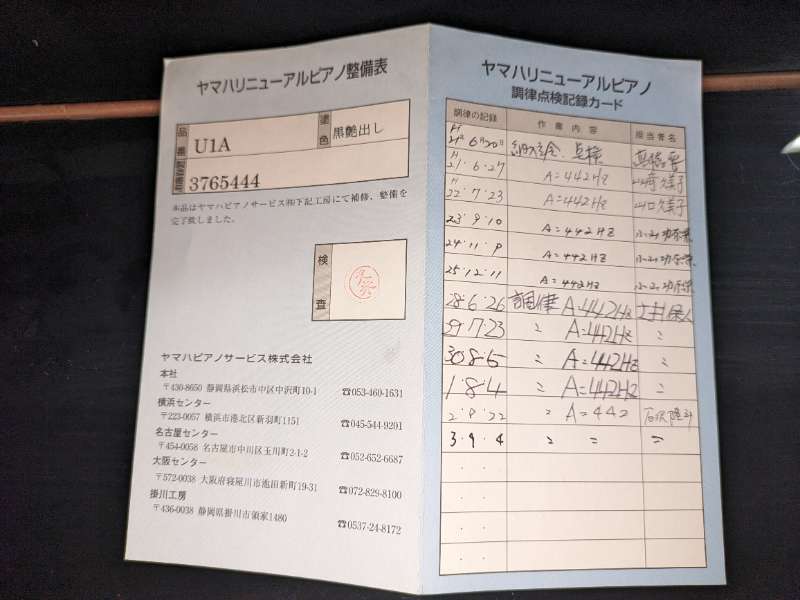 ヤマハリニューアルピアノ整備表
品番 U1A 塗色 黒艶出し
3765444
本品はヤマハピアノサービス㈱下記工房にて補修、整備を
完了致しました。
検査
ヤマハピアノサービス株式会社
本社
〒430-8650 静岡県浜松市中区中沢町10-1 ☎053-460-1631
横浜センター
〒223-0057 横浜市港北区新羽町1151 ☎045-544-9201
名古屋センター
〒454-0058 名古屋市中川区玉川町2-1-2 ☎052-652-6687
大阪センター
〒572-0038 大阪府寝屋川市池田新町19-31 ☎072-829-8100
掛川工房
〒436-0038 静岡県掛川市領家1480 ☎0537-24-8172
ヤマハリニューアルピアノ
調律点検記録カード
調律の記録 作業内容 担当者名
H 21年6月20日 点検
H 21・6・27 A=442Hz
H 22・7・23 A=442Hz
23・9・10 A=442HZ
24・11・9 A=442HZ
25・12・11 A=442HZ
28・6・26 調律 A=442Hz
29・7・23 〃 A=442Hz 〃
30・8・5 〃 A=442Hz 〃
1・8・4 〃 A=442Hz 〃
2・9・22 〃 A=442
3・9・4 〃 〃 〃